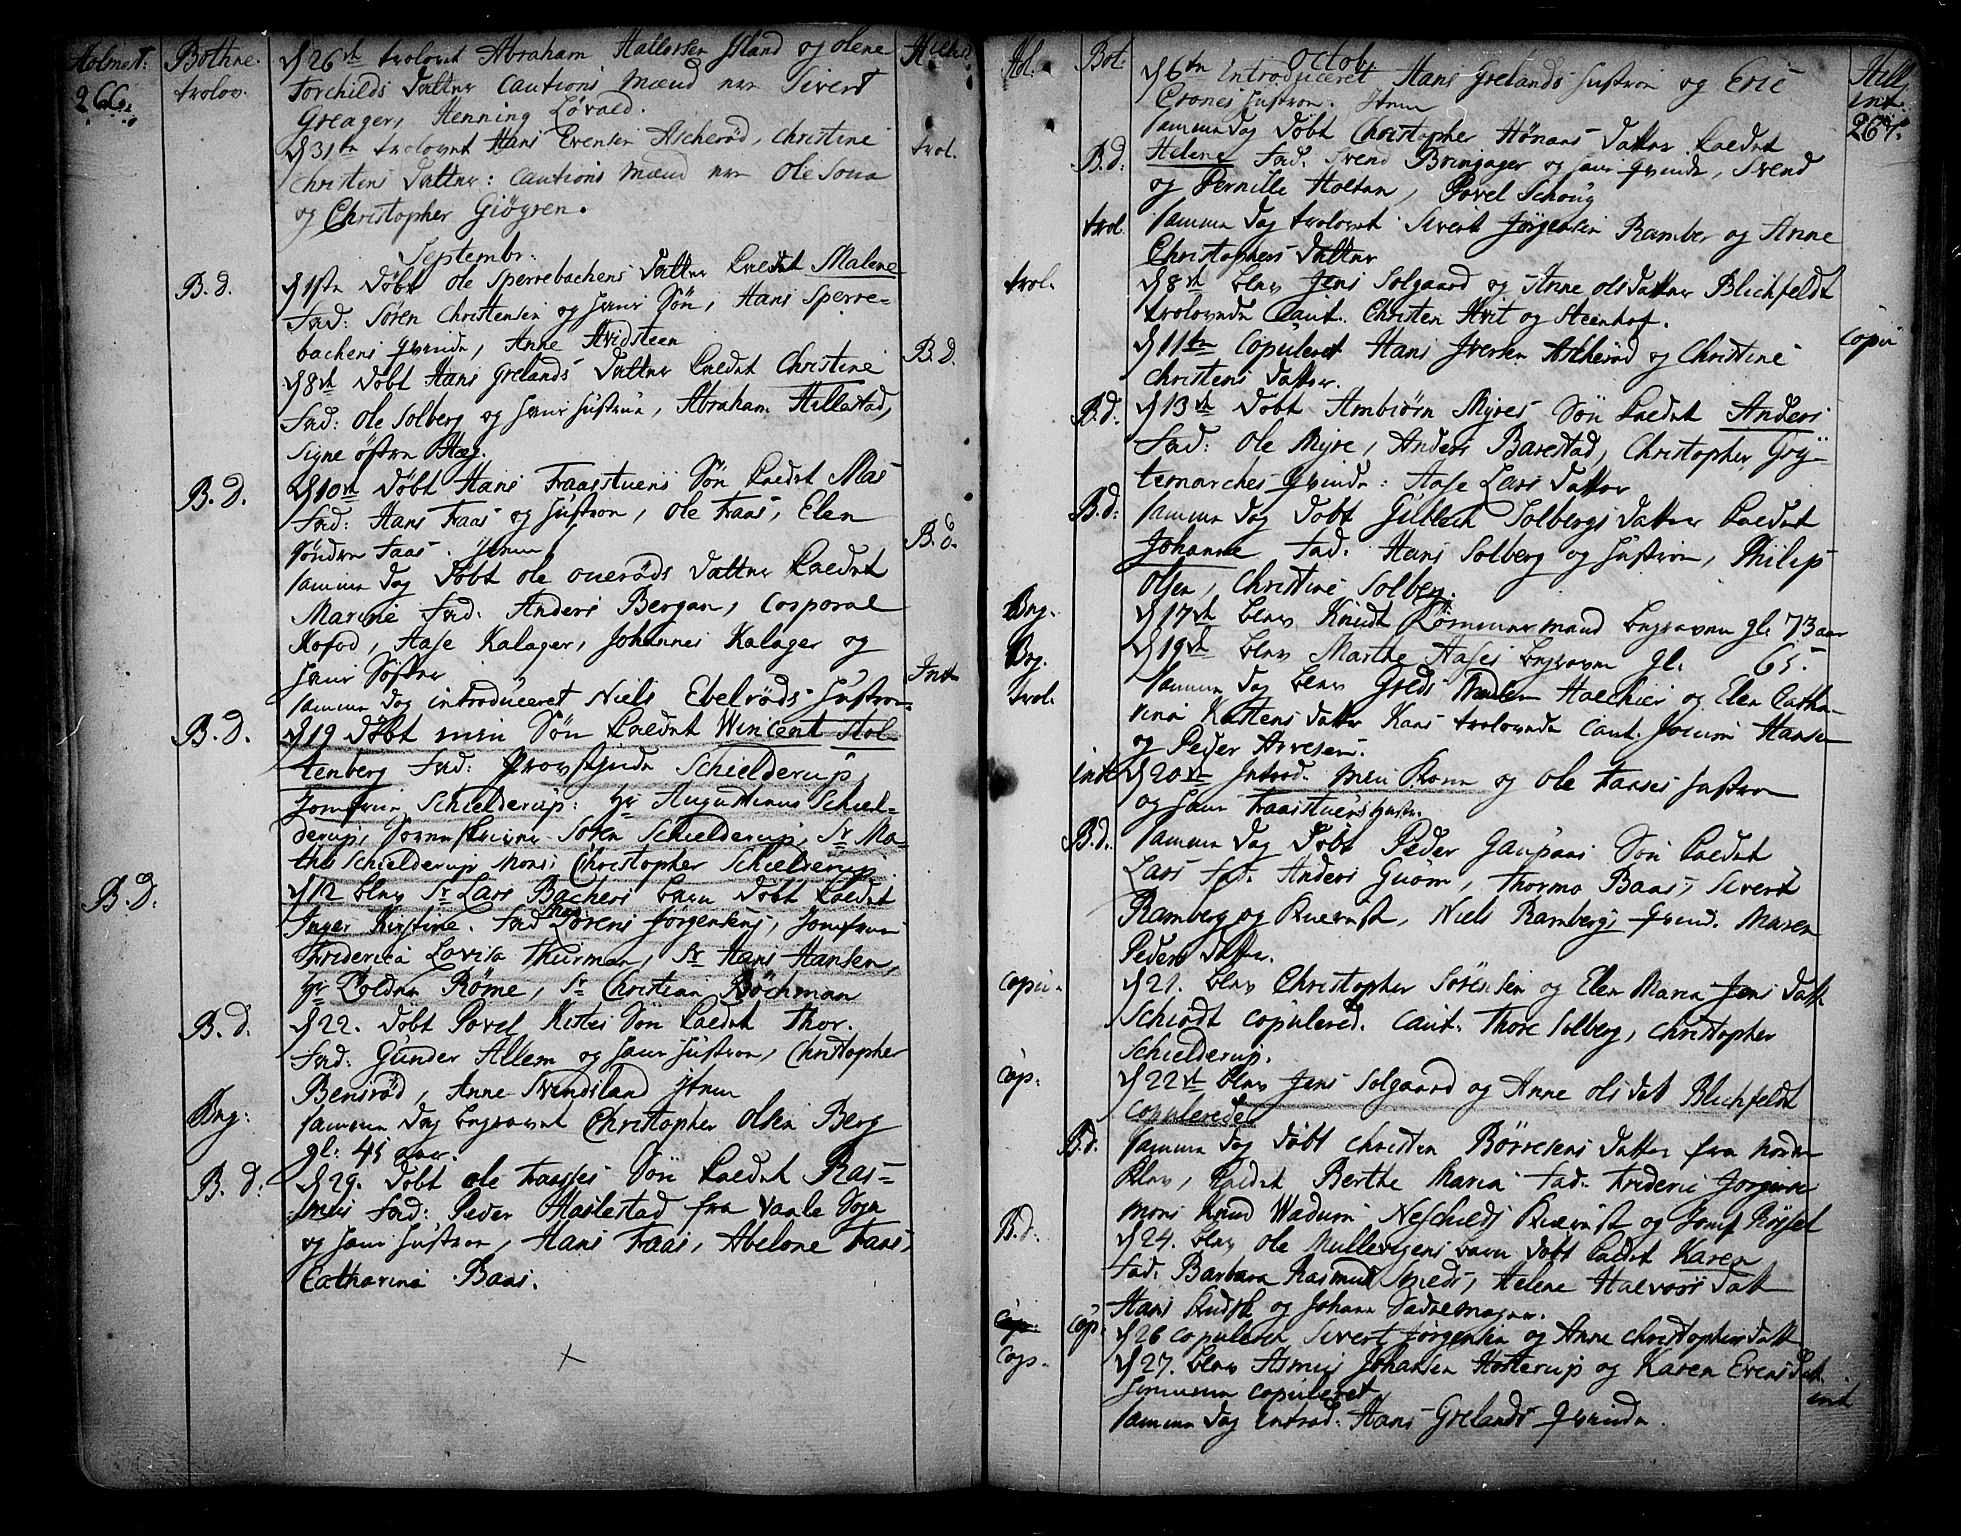 Holmest:
266.
Bothne.
Hillest.
trolov.
d 26de trolovet Abraham Hallorsen Island og olene
Torchilds Datter Cautions Mænd er Sivert
Greager, Henning Løvald.
trol.
d 31te trolovet Hans Evensen Ascherød, Christine
Christens Datter: Cautions Mænd er Ole Sona
og Christopher Giøgren.
Septembr:
B. d.
d 1ste Døbt ole Sperrebachens Datter kaldet Malene
Fad: Søren Christensen og hans Søn, Hans Sperre-
bachens qvinde, Anne Hvidsteen
B. D.
d 8de Døbt Hans Grelands Datter kaldet Christine
Fad: Ole Solberg og hans hustrue, Abraham Hillestad,
Signe østre Hæg.
B. D.
d 10de Døbt Hans Faasstuens Søn kaldet Mas
Fad: Hans Faas og hustroe, Ole Faas, Elen
Søndre Faas. Item
B. d.
samme Dag Døbt ole onerøds Datter kaldet
Marine Fad: Anders Bergan, Corporal
Kofod, Aase Kalager, Johannes Kalager og
hans Søster
Int
samme Dag introduceret Niels Ebelrøds hustroe
B. D.
d 19 Døbt min Søn kaldet Wincent Stol-
tenberg Fad: Schielderup,
Jomfrue Schielderup: Hr Augustinus Schiel-
derup, Sorenskriver Søren Schielderup, Sr Ma-
ths Schielderup Mons: Christopher Schielderup
B. D.
d 12 blev Sr Lars Bachers barn Døbt kaldet
Inger Kirstine. Fad Sørens Jørgensens, Jomfrue
Friderica Lovisa Thurman, Sr Hans Hansen,
Hr Røme, Sr Christian Bøchman
B. d.
d 22. Døbt Povel Kistes Søn kaldet Thor.
Fad: Gunder Allem og hans hustroe, Christopher
Bensrød, Anne Svendsland Item
Beg:
samme Dag begravet Christopher Olsen Berg
gl: 45 aar.
B. d:
d 29. Døbt ole Faasses Søn kaldet Ras-
mus Fad: Peder Haslestad fra Vaale Sogn
og hans hustroe, Hans Faas, Abelone Faas,
Catharina Baas.
Hol.
Bot.
Octob.
Hill
int:
267.
d 6te Introduceret Hans Grelands hustroe og Eric
Crones hustroe. Item
B. d:
samme Dag Døbt Christopher Hønaas Datter kaldet
Helene Fad. Svend Bringager og hans qvinde, Svend
og Pernille Holtan, Povel Schoug
trol.
samme Dag trolovet Sivert Jørgensen Ramber og Anne
Christophers Datter
trol.
d 8de blev Jens Solgaard og Anne ols Datter Blichfeldt
trolovede Caut. Christen Hvit og Steenhof.
copu
d 11te Copuleret Hans Iversen Ascherød og Christine
Christens Datter.
B.d:
d 13de Døbt Ambiørn Myres Søn kaldet Anders
Fad: Ole Myre, Anders Barestad, Christopher Gry-
temarches qvinde: Aase Lars Datter
B.d:
samme Dag Døbt Gullech Solbergs Datter kaldet
Johanne Fad. Hans Solberg og hustroe, Philip
Olsen, Christine Solberg.
Beg.
d 17de blev Knudt Rømmermand begraven gl: 73 aar
Beg.
d 19de blev Marthe Aases begraven gl. 65.
trol.
samme Dag blev Halchier og Elen Catha-
rina Kastens Datter Kaas trolovede Caut. Jocum Hansen
og Peder Arvesen.
int:
d 20de Introd. min Kone og Ole Faases hustroe
og hans Faasstuens hustr.
B.d.
samme Dag Døbt Peder Gaupaas Søn kaldet
Lars Fad. Anders Guøm, Thormo Baas, Sivert
Ramberg og Kuernst, Niels Rambergs qvind. Maren
Peders Datter.
copu.
d 21. blev Christopher Sørensen og Elen Maria Jens Datt
Schiødt copulered. Caut. Thore Solberg, Christopher
Schielderup.
Cop:
d 22de blev Jens Solgaard og Anne ols dat Blichfeldt
copulerede
B.d.
samme Dag Døbt Christen Børresens Datter fra Norde
klev, kaldet Berthe Maria Fad. Frideric Jorgensen
Mons Knud Wadum Neschields og Jomf Røyset
B.d.
d 24. blev Ole Mullevigens barn Døbt kaldet Karen
Fad. Barbara Rasmus Smeds, Helene Halvors Datt
Hans og Johan Sadelmager.
Cop.
d 26 copuleret Sivert Jørgensen og Anne Christophers datt
Cop.
d 27. blev Asmus Johansen Hosterup og Karen Evens Dat.
sammen copuleret
int
samme Dag introd. Hans Grelands qvinde.